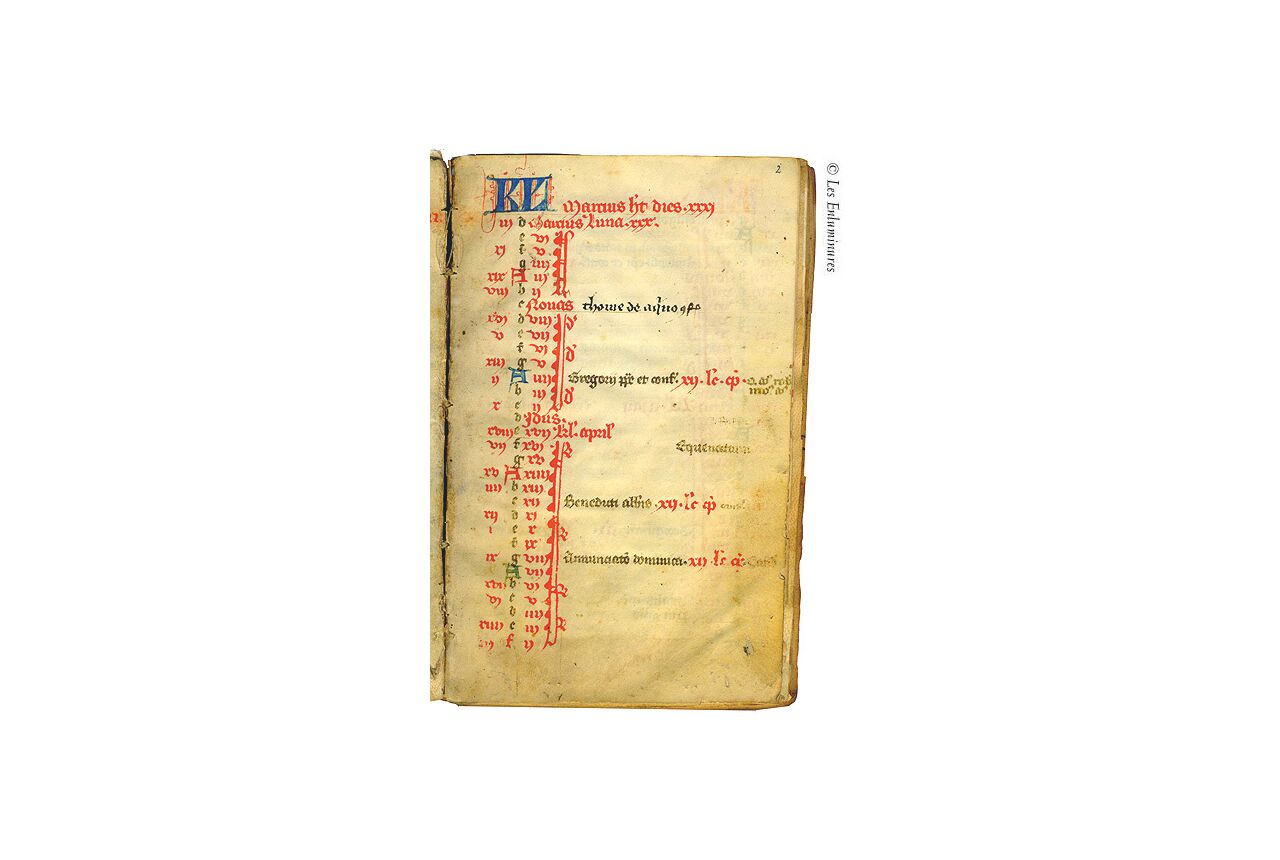 2
KL
Marcius ht dies .xxxi
iii d Marcius Luna .xxx.
e vi
xi f v
g iiii
xix A iii
viii b ii
c Nonas thome de aquo
xvi d viii
v e vii
f vi
xiii g v
ii A iiii Gregorii pp et conf. xii. lc. cp.
b iii
x c ii
d Idus.
xviii e xvii kl. april
vii f xvi Equinoctium
g xv
xv A xiiii
iiii b xiii
c xii Benedicti abbis .xii. lc cp
xii d xi
i e x
f ix
ix g viii Annunciato dominica. xii. lc. cp.
A vii
xvii b vi
vi c v
d iiii
xiiii e iii
iii f ii
© Les Enluminures